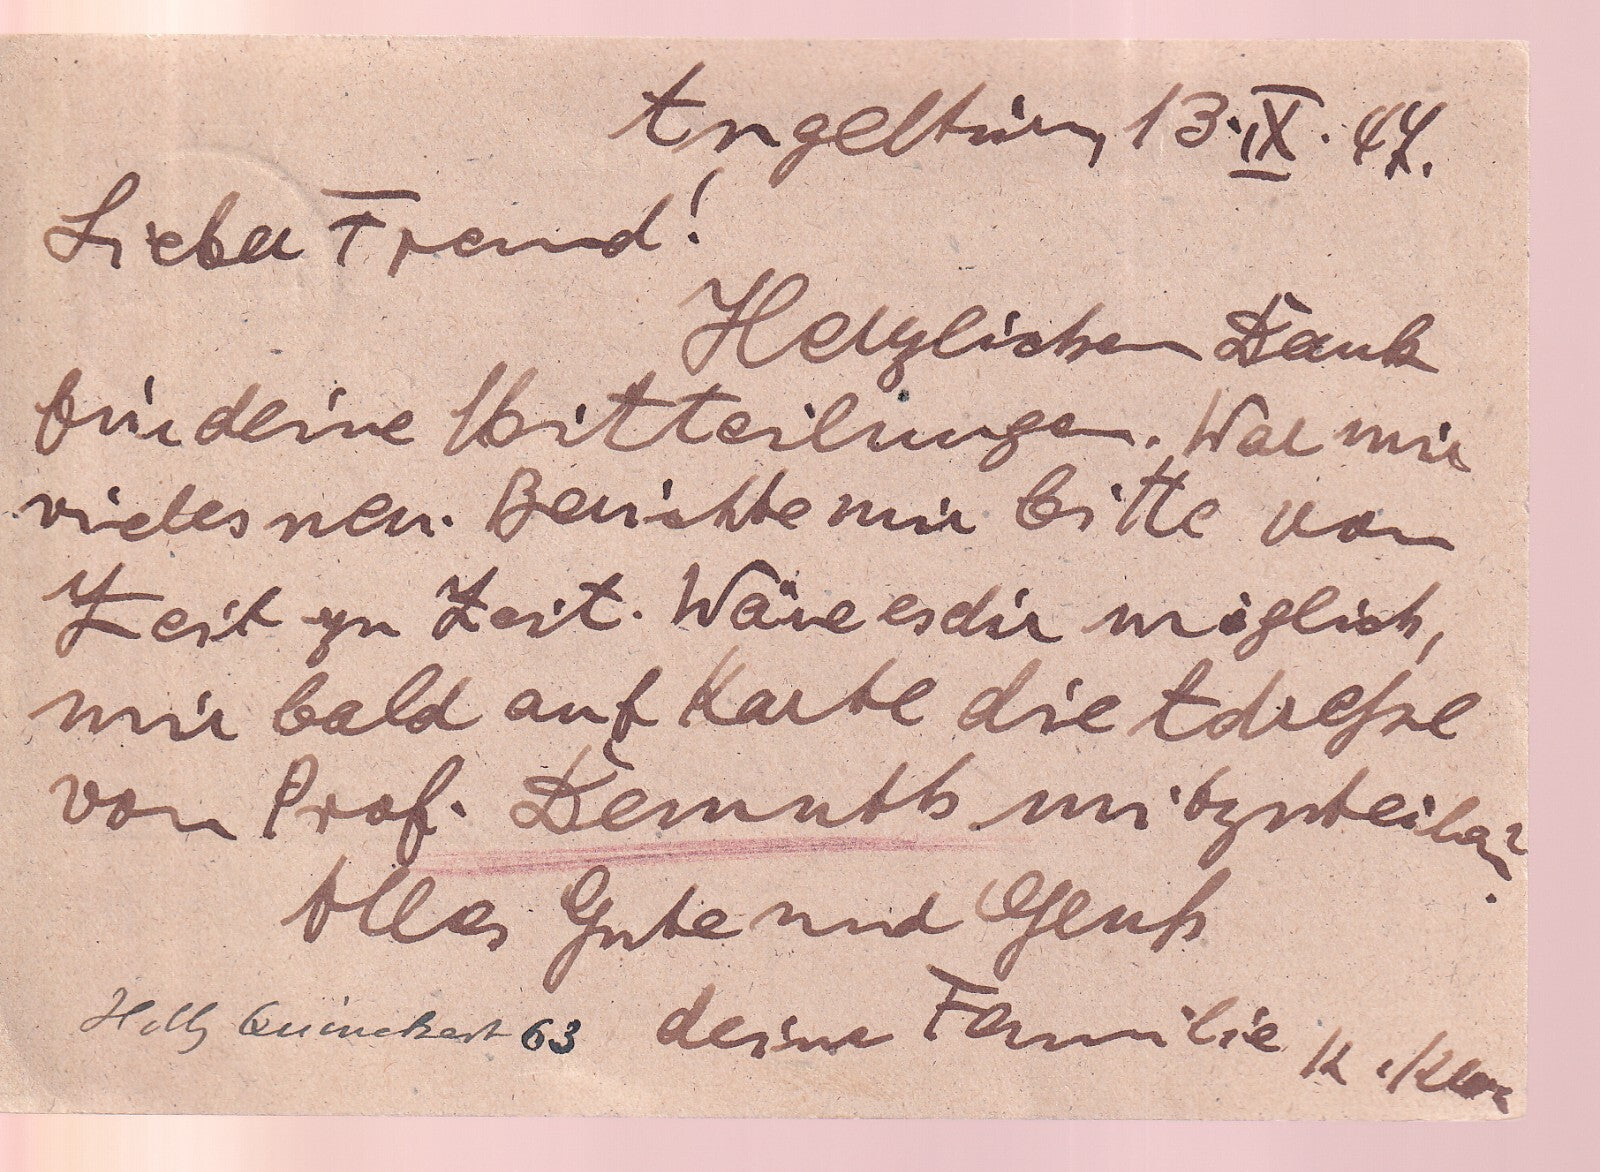 Angeltürn, 13.IX.47.
Lieber Freund!
Herzlichen Dank
für deine Mitteilungen. War mir
vieles neu. Berichte mir bitte von
Zeit zu Zeit. Wäre es dir möglich,
mir bald auf Karte die Adreße
von Prof. Demuth mitzuteilen?
Alles Gute und Gruß
deine Familie K.
Quinckert 63